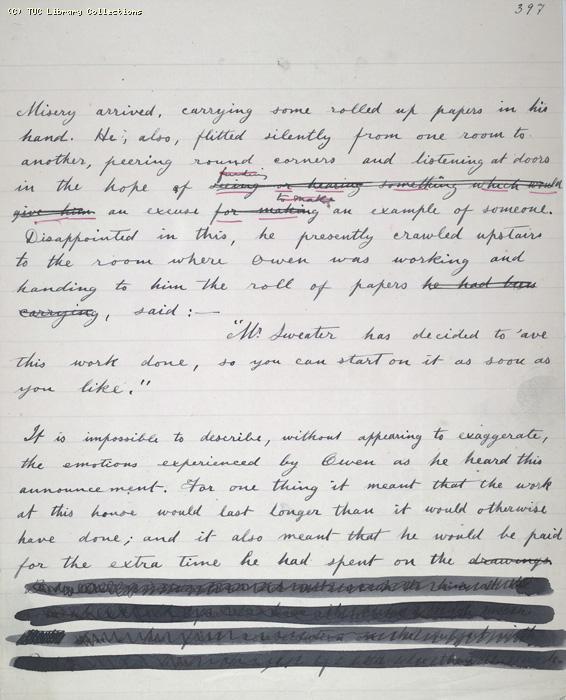 (C) TUC Library Collections
397
Misery arrived, carrying some rolled up papers in his
hand. He, also, flitted silently from one room to
another, peering round corners and listening at doors
finding
in the hope of seeing or hearing something which would
to make
give him an excuse for making an example of someone.
Disappointed in this, he presently crawled upstairs
to the room where Owen was working and
handing to him the roll of papers he had been
carrying, said :—
"Mr Sweater has decided to 'ave
this work done, so you can start on it as soon as
you like."
It is impossible to describe, without appearing to exaggerate,
the emotions experienced by Owen as he heard this
announcement. For one thing it meant that the work
at this house would last longer than it would otherwise
have done; and it also meant that he would be paid
for the extra time he had spent on the drawings